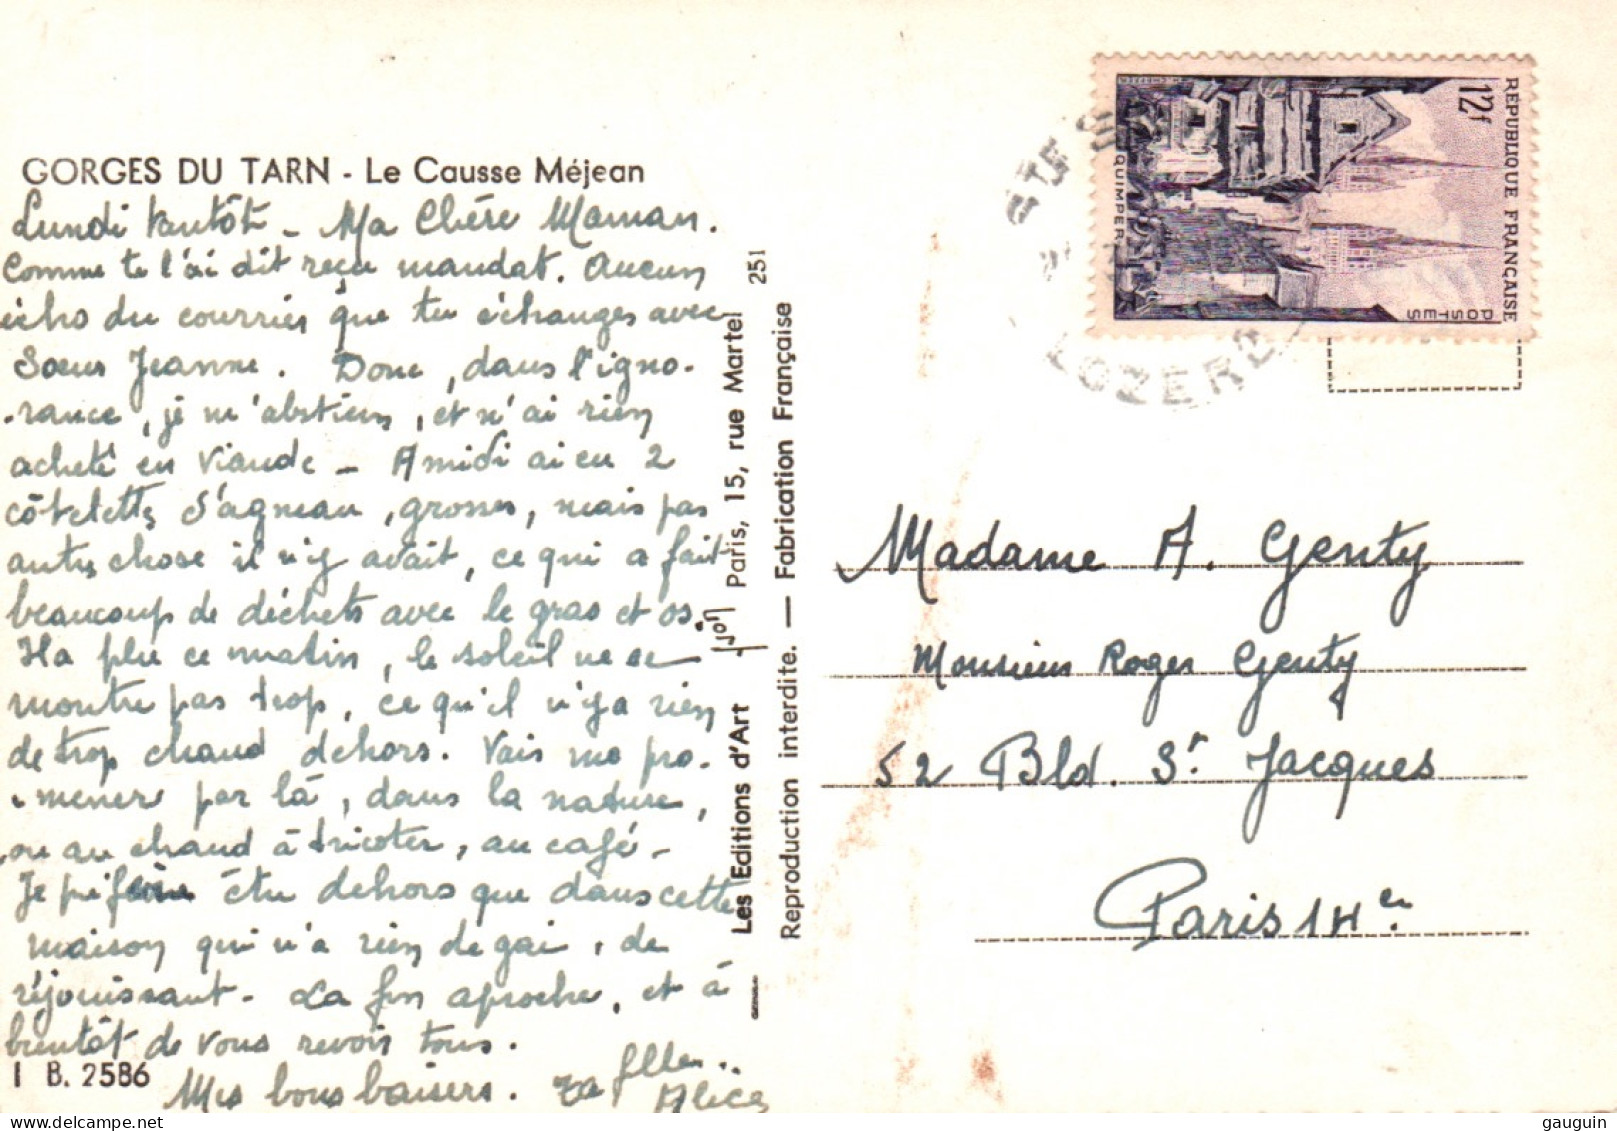 GORGES DU TARN - Le Causse Méjean
Lundi tantôt - Ma Chère Maman.
Comme te l'ai dit reçu mandat. Aucun
écho du courrier que tu échanges avec
Sœur Jeanne. Donc, dans l'igno-
-rance, je m'abstiens, et n'ai rien
acheté en viande - A midi ai eu 2
côtelettes d'agneau, grosses, mais pas
autre chose il n'y avait, ce qui a fait
beaucoup de déchets avec le gras et os.
Ha plu ce matin, le soleil ne se
montre pas trop, ce qu'il n'y a rien
de trop chaud dehors. Vais me pro-
-mener par là, dans la nature,
ou au chaud à tricoter, au café -
Je préfère être dehors que dans cette
maison qui n'a rien de gai, de
réjouissant. La fin aproche, et à
bientôt de vous revoir tous.
Mes bons baisers. Ta fille..
Alice
I B. 2586
Les Editions d'Art Yvon Paris, 15, rue Martel 251
Reproduction interdite. — Fabrication Française
12f
REPUBLIQUE FRANÇAISE
POSTES
QUIMPER
LOZERE
Madame A. Genty
Monsieur Roger Genty
52 Bld. St Jacques
Paris 14er
gauguin © www.delcampe.net